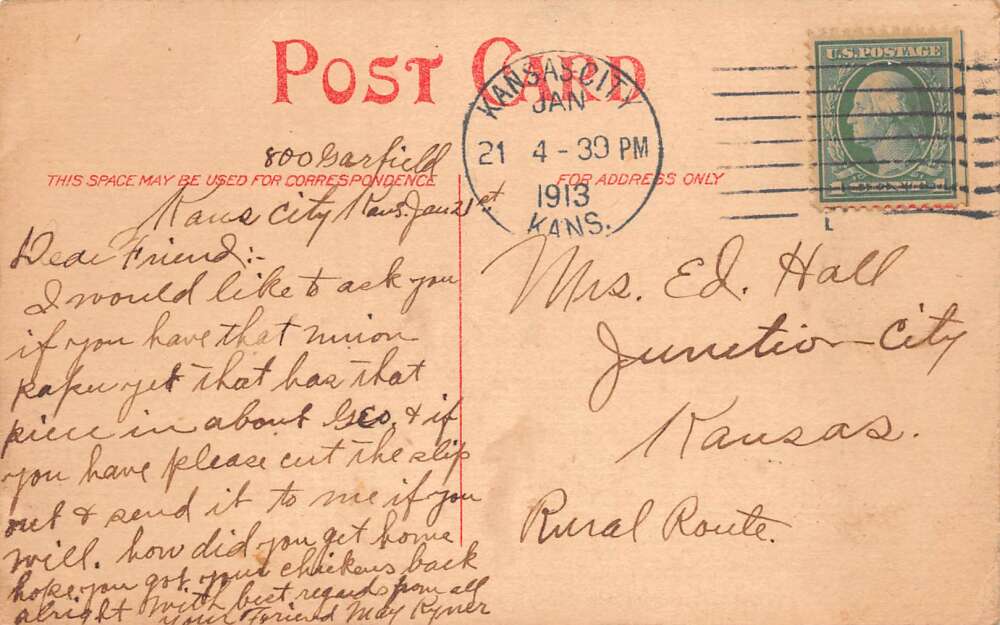 POST CARD
U.S. POSTAGE
KANSAS CITY
JAN
21 4-30 PM
1913
KANS.
THIS SPACE MAY BE USED FOR CORRESPONDENCE
FOR ADDRESS ONLY
800 Garfield
Kans City Kans. Jan 21st
Dear Friend:-
I would like to ask you
if you have that union
paper yet that has that
piece in about Geo, & if
you have please cut the slip
out & send it to me if you
will. how did you get home
hope you got your chickens back
alright with best regards from all
your Friend May Kyner
Mrs. Ed. Hall
Junction City
Kansas.
Rural Route.